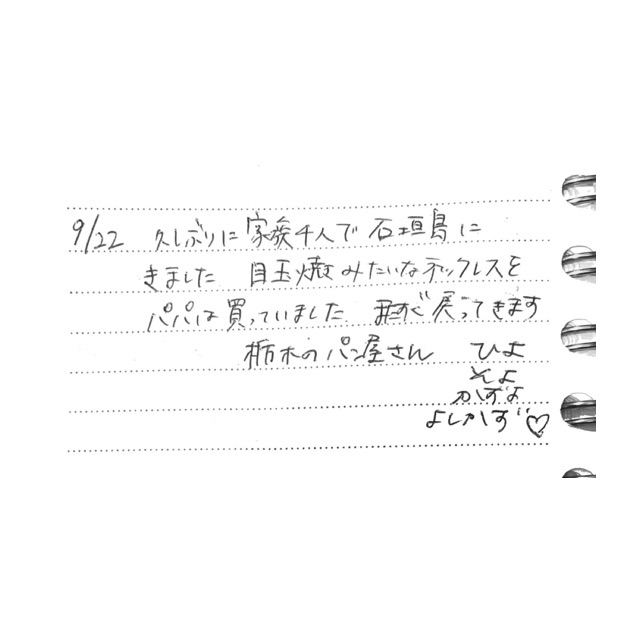 9/22 久しぶりに家族4人で石垣島に
きました 目玉焼みたいなネックレスを
パパは買っていました すぐ戻ってきます
栃木のパン屋さん ひよ
そよ
かずよ
よしかず♡